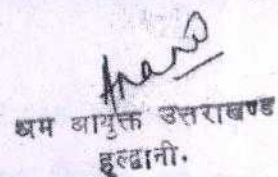 श्रम आयुक्त उत्तराखण्ड
हल्द्वानी.